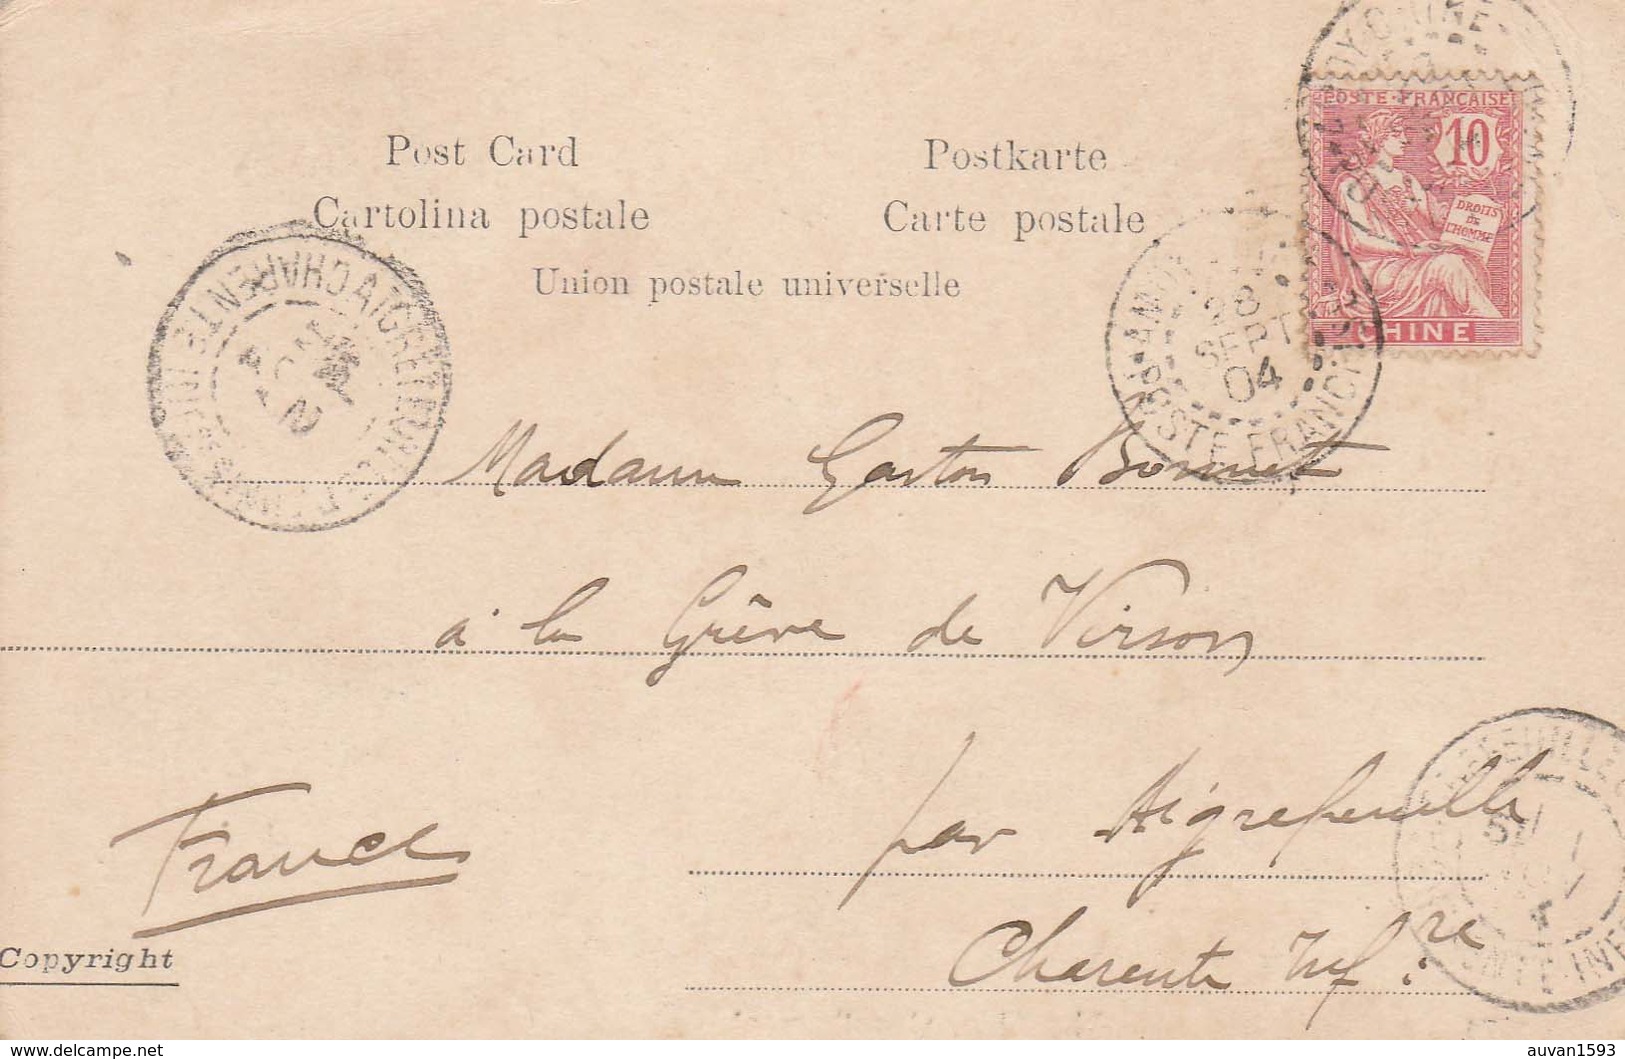 Post Card
Postkarte
Cartolina postale
Carte postale
Union postale universelle
POSTE FRANÇAISE
10
DROITS
DE
L'HOMME
CHINE
28
SEPT
04
POSTE FRANCHISE
Madame Gaston Bonnet
à la Grève de Virson
par Aigrefeuille
Charente Inf.re
France
Copyright
auvan1593